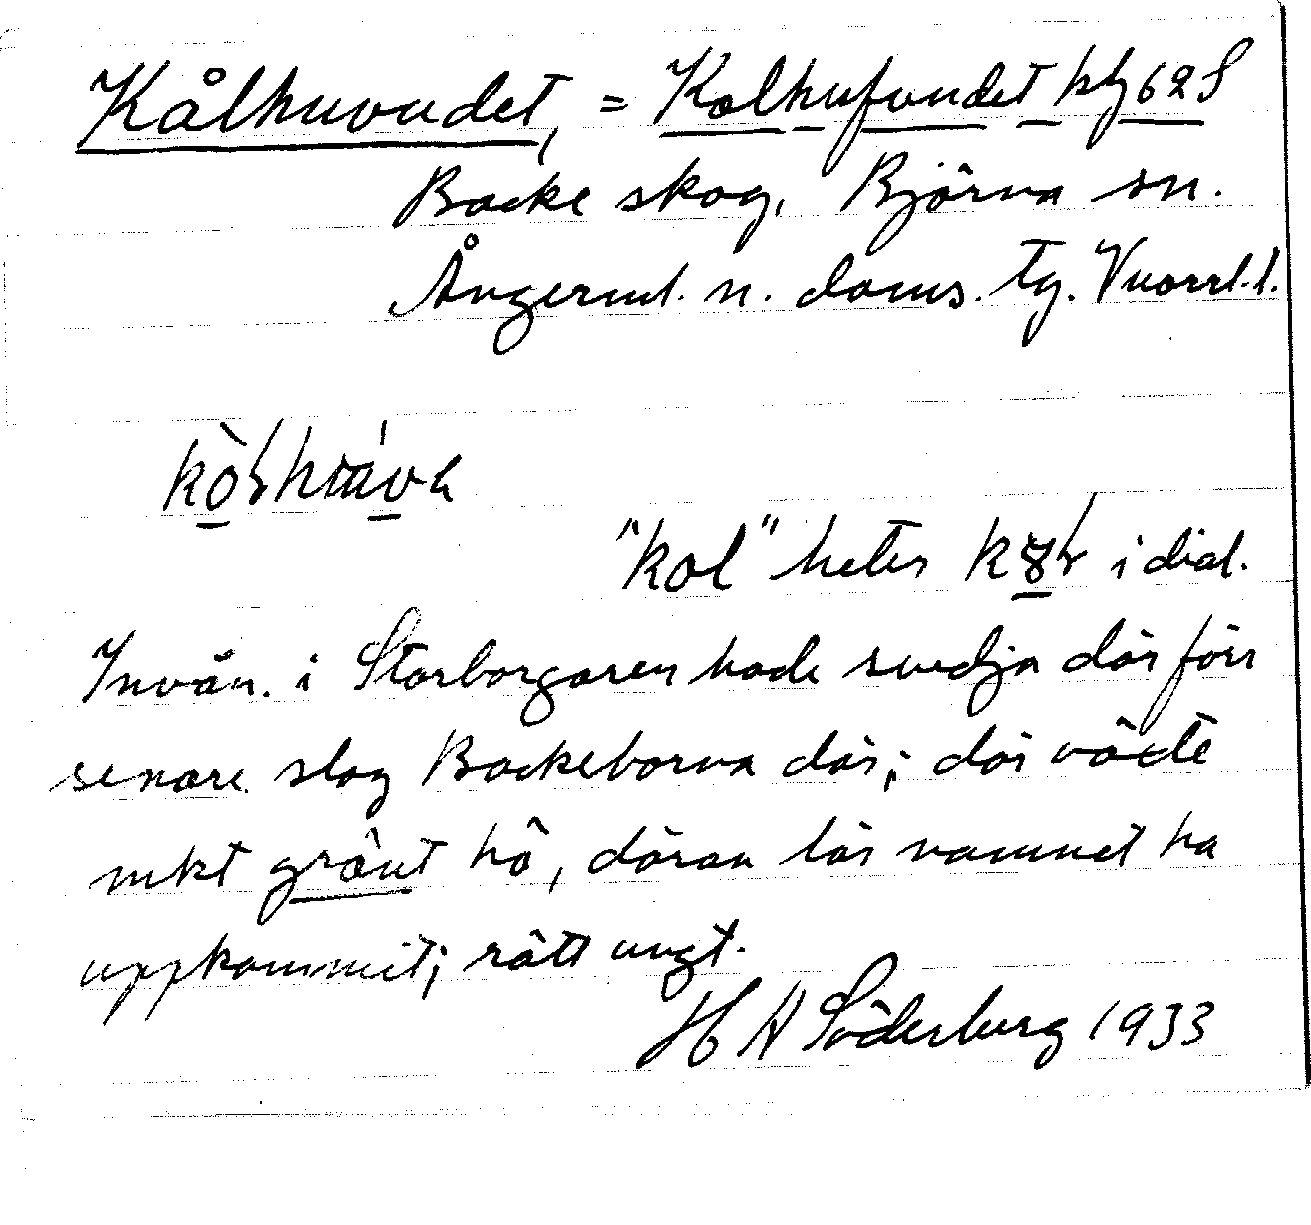 Kålhuvudet, = Kolhufvudet kbl 62 S
Backe skog, Björna sn.
Ångerml. n. doms. Tg. Vnorrl. l.
"kol" heter i dial.
Invån. i Storborgaren hade svedja där förr
senare slog Backeborna där; där växte
mkt grönt hö, därav lär namnet ha
uppkommit; rätt ungt.
H A Söderberg 1933